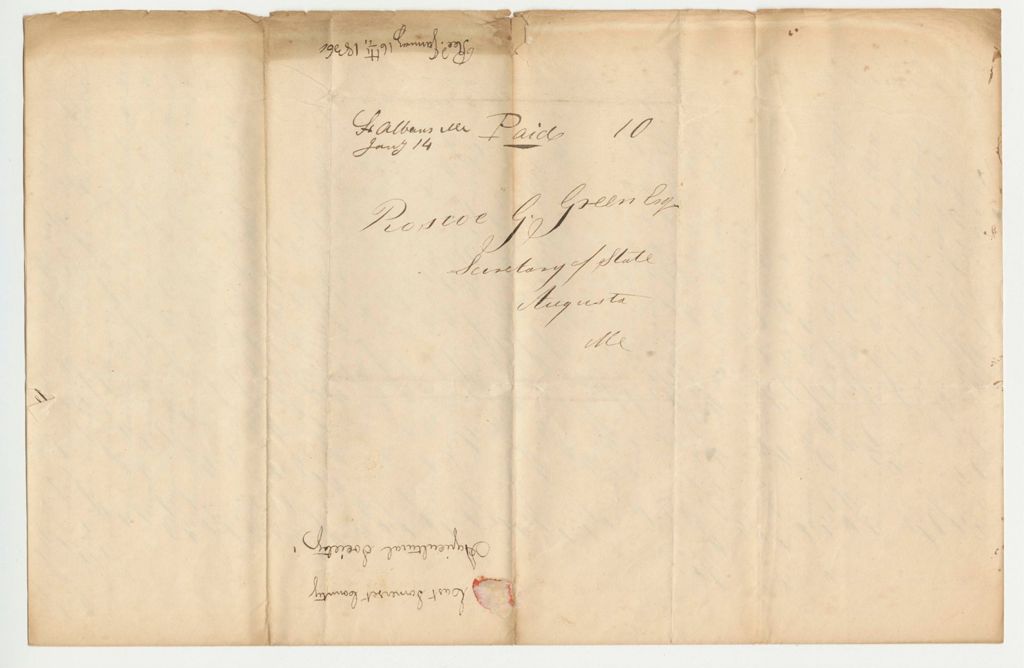 Rec.d January 16th, 1836
St Albans Me Paid 10
Jany 14
Roscoe G. Green Esq
Secretary of State
Augusta
Me
East Somerset County
Agricultural Society